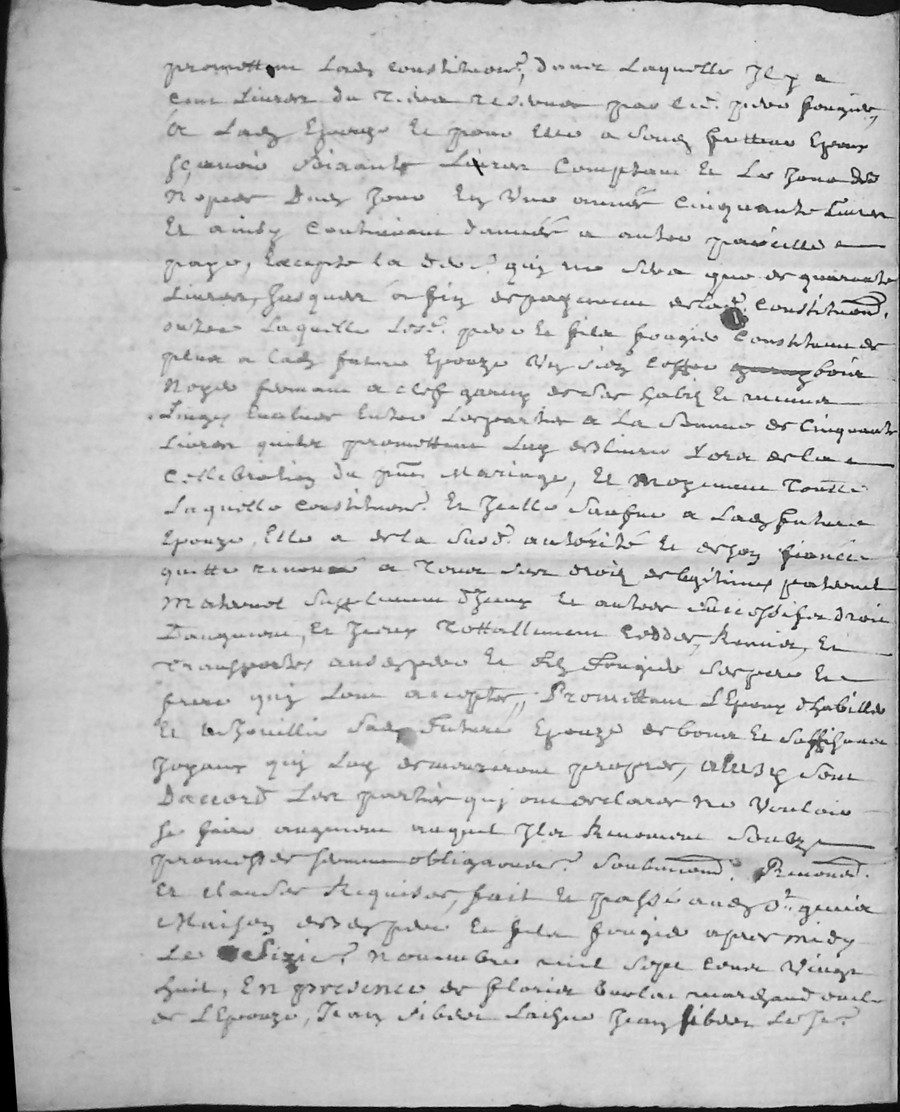 promettent Lad. constitution, dans Laquelle Jl y a
cent Livres du reserves par led. pere fougier,
a Lad. Epouze Et pour Elle a Sond. futteur Epoux
sçavoir Soixante Livres Comptant Et Le Jour des
Nopces Dud. Jour En Une année Cinquante Livres
Et ainsy Continuant d'année a autre pareille
paye, Excepté la der. quy ne sera que de quarante
Livres, Jusques a fin de payement de lad. Constitution.
outre Laquelle Lesd. pere Et fils fougier Constituent de
plus a lad. future Epouze Un coffre bois
Noyer fermant a clef garny de Ses habits Et menus
Linges Evalués Entre Les parties a La Somme de Cinquante
Livres quils promettent Luy delivrer Lors de la
Cellebration du pnt Mariage, Et Moyenant Toutte
Laquelle constitution. Et Jcelle Sauf a Lad. future
Epouze, Elle a de la Susd. authorité Et de son fiancé
quitté renoncé a Tous Ses droits de legitime paternel
Maternel Supplement d'Jceux Et autres Successifs droits
Et Jceux Tottallement Ceddés, Remis, Et
Transportés auxd. pere Et fils Fougier Ses pere Et
frere quy Lont accepté, Promettant L'Epoux d'habiller
Et Enjoailler Sad. Future Epouze de bons Et Suffisans
Joyaux quy Luy demeureront propres, ainsy Sont
D'accord Les parties quy ont declaré ne Vouloir
Se faire augment auquel Jls Renoncent Soubz
promesses serment obligations. Soubmissions. Renons.
Et clauses Requises, fait Et passé aud.
Maison desd. pere Et fils fougier apres midy
Le Sizie. Novembre mil Sept Cent Vingt
huit, En presence de marchand oncle
de L'Epouze, Jean Jean